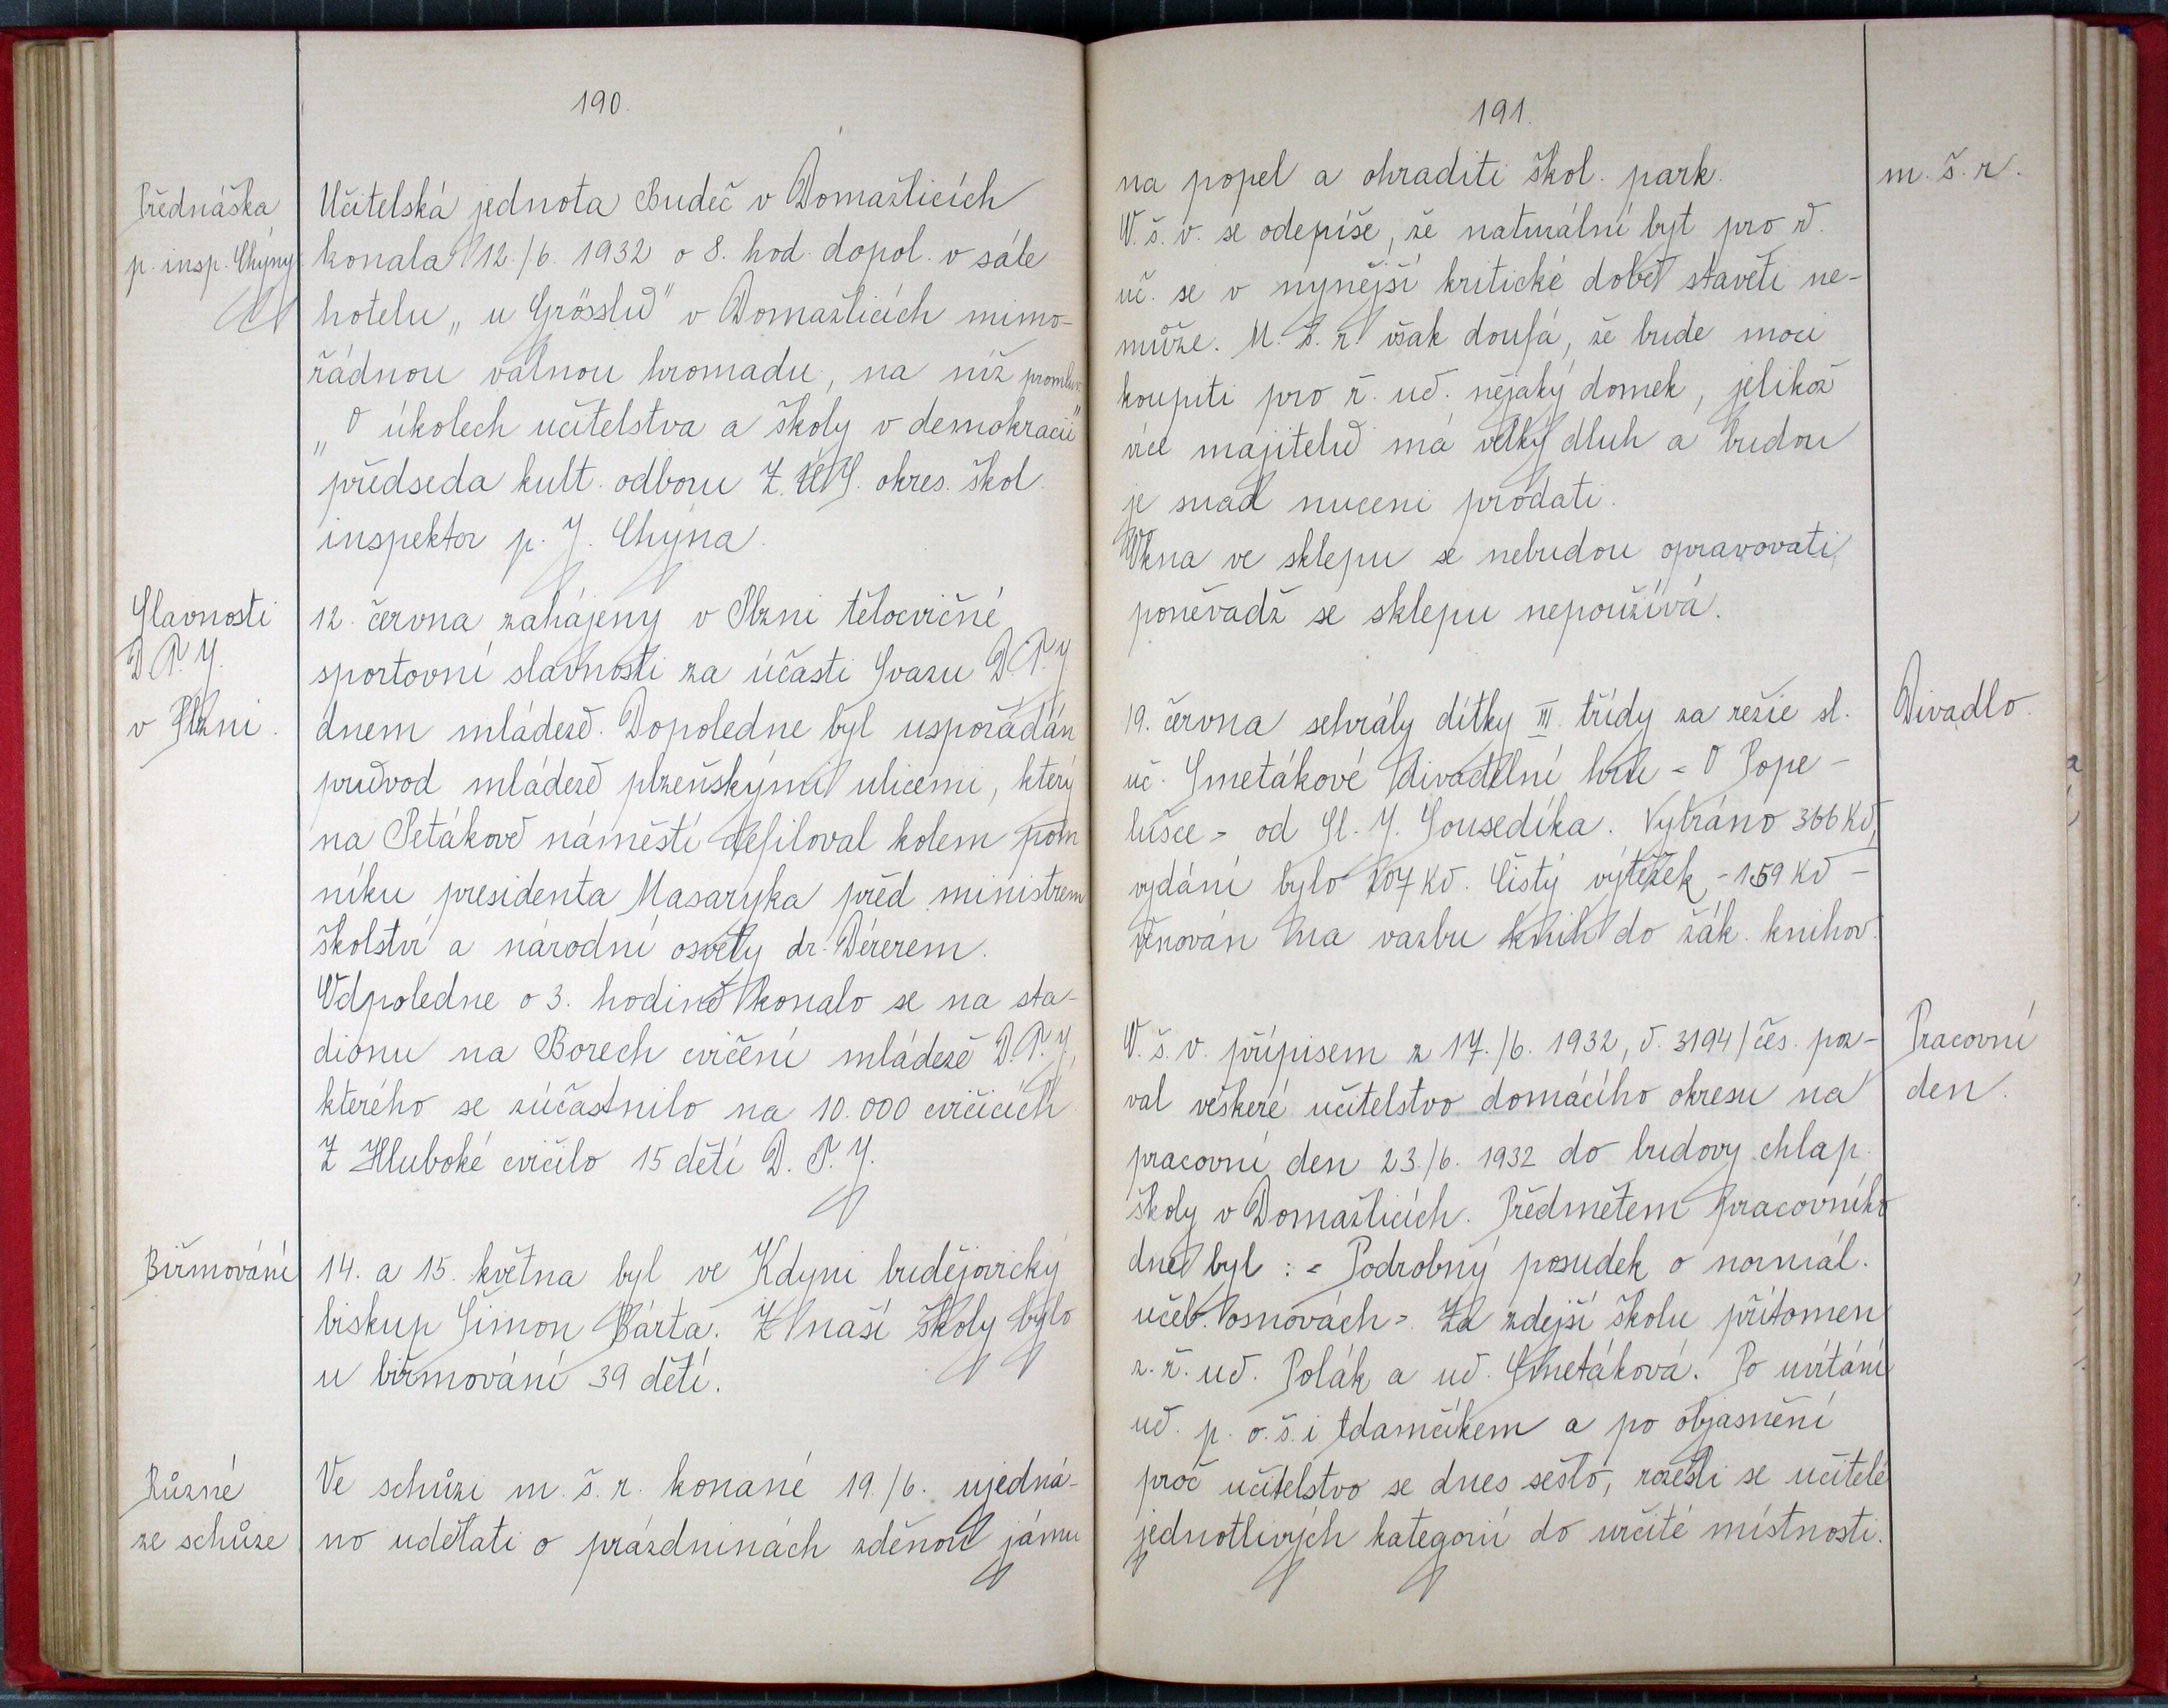 190.
Přednáška
p. insp. Chýny
Učitelská jednota Budeč v Domažlicích
konala 12./6. 1932 o 8. hod. dopol. v sále
hotelu „u Grösslů" v Domažlicích mimo-
řádnou valnou hromadu, na níž promluv.
„O úkolech učitelstva a školy v demokracii"
předseda kult. odboru Z. U. S. okres. škol.
inspektor p. J. Chýna.
Slavnosti
D. T. J.
v Plzni.
12. června zahájeny v Plzni tělocvičné
sportovní slavnosti za účasti Svazu D. T. J.
dnem mládeže. Dopoledne byl uspořádán
průvod mládeže plzeňskými ulicemi, který
na Petákově náměstí defiloval kolem pom
níku presidenta Masaryka před ministrem
školství a národní osvěty dr. Dérerem.
Odpoledne o 3. hodině konalo se na sta-
dionu na Borech cvičení mládeže D. T. J.,
kterého se zúčastnilo na 10.000 cvičících
Z Hluboké cvičilo 15 dětí D. T. J.
Biřmování
14. a 15. května byl ve Kdyni budějovický
biskup Šimon Bárta. Z naší školy bylo
u biřmování 39 dětí.
Různé
ze schůze
Ve schůzi m. š. r. konané 19./6. ujedná-
no udělati o prázdninách zděnou jámu
191.
m. š. r.
na popel a ohraditi škol. park.
O. š. v. se odepíše, že naturální byt pro ř.
uč. se v nynější kritické době stavěti ne-
může. M. š. r. však doufá, že bude moci
koupiti pro ř. uč. nějaký domek, jelikož
více majitelů má velký dluh a budou
je snad nuceni prodati.
Okna ve sklepu se nebudou opravovati,
poněvadž se sklepu nepoužívá.
Divadlo.
19. června sehrály dítky III. třídy za režie sl.
uč. Smetákové divadelní hru = O Pope-
lušce = od Sl. J. Sousedíka. Vybráno 366 Kč,
vydání bylo 207 Kč. Čistý výtěžek - 159 Kč -
věnován na vazbu knih do žák. knihov.
Pracovní
den.
O. š. v. přípisem z 17./6. 1932, č. 3194/čes. poz-
val veškeré učitelstvo domácího okresu na
pracovní den 23./6. 1932 do budovy chlap.
školy v Domažlicích. Předmětem pracovního
dne byl: = Podrobný posudek o normál.
učeb. osnovách =. Za zdejší školu přítomen
z. ř. uč. Polák a uč. Smetáková. Po uvítání
uč. p. o. š. i Adamčíkem a po objasnění
proč učitelstvo se dnes sešlo, rozešli se učitelé
jednotlivých kategorií do určité místnosti.